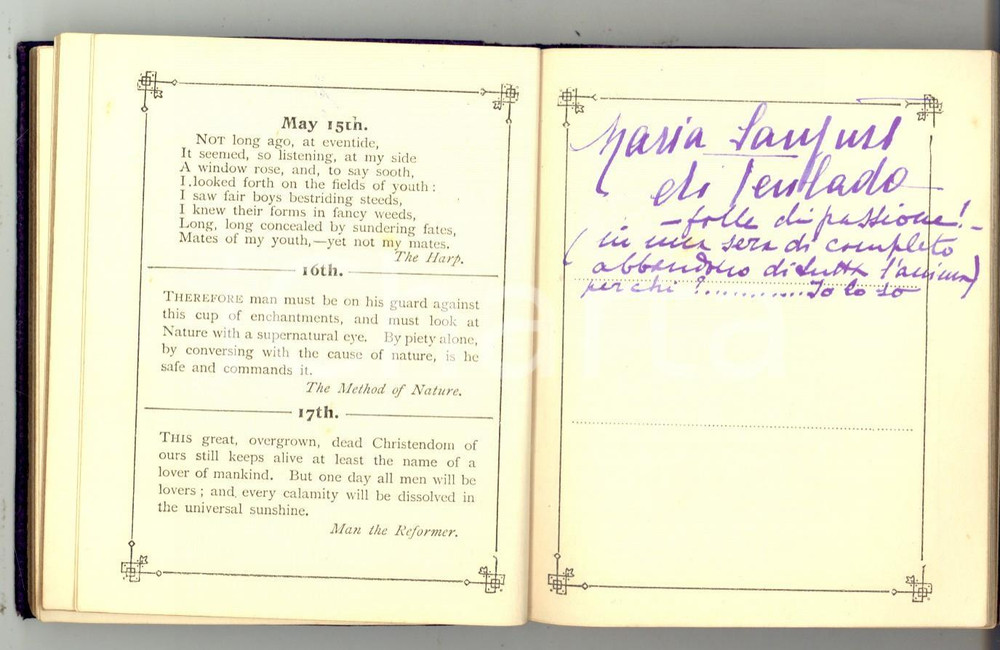 May 15th.
NOT long ago, at eventide,
It seemed, so listening, at my side
A window rose, and, to say sooth,
I looked forth on the fields of youth:
I saw fair boys bestriding steeds,
I knew their forms in fancy weeds,
Long, long concealed by sundering fates,
Mates of my youth,—yet not my mates.
The Harp.
16th.
THEREFORE man must be on his guard against
this cup of enchantments, and must look at
Nature with a supernatural eye. By piety alone,
by conversing with the cause of nature, is he
safe and commands it.
The Method of Nature.
17th.
THIS great, overgrown, dead Christendom of
ours still keeps alive at least the name of a
lover of mankind. But one day all men will be
lovers; and every calamity will be dissolved in
the universal sunshine.
Man the Reformer.
Maria Sanjust
di Teulada
—folle di passione!—
(in una sera di completo
abbandono di tutta l'anima)
perchè?............Io lo so